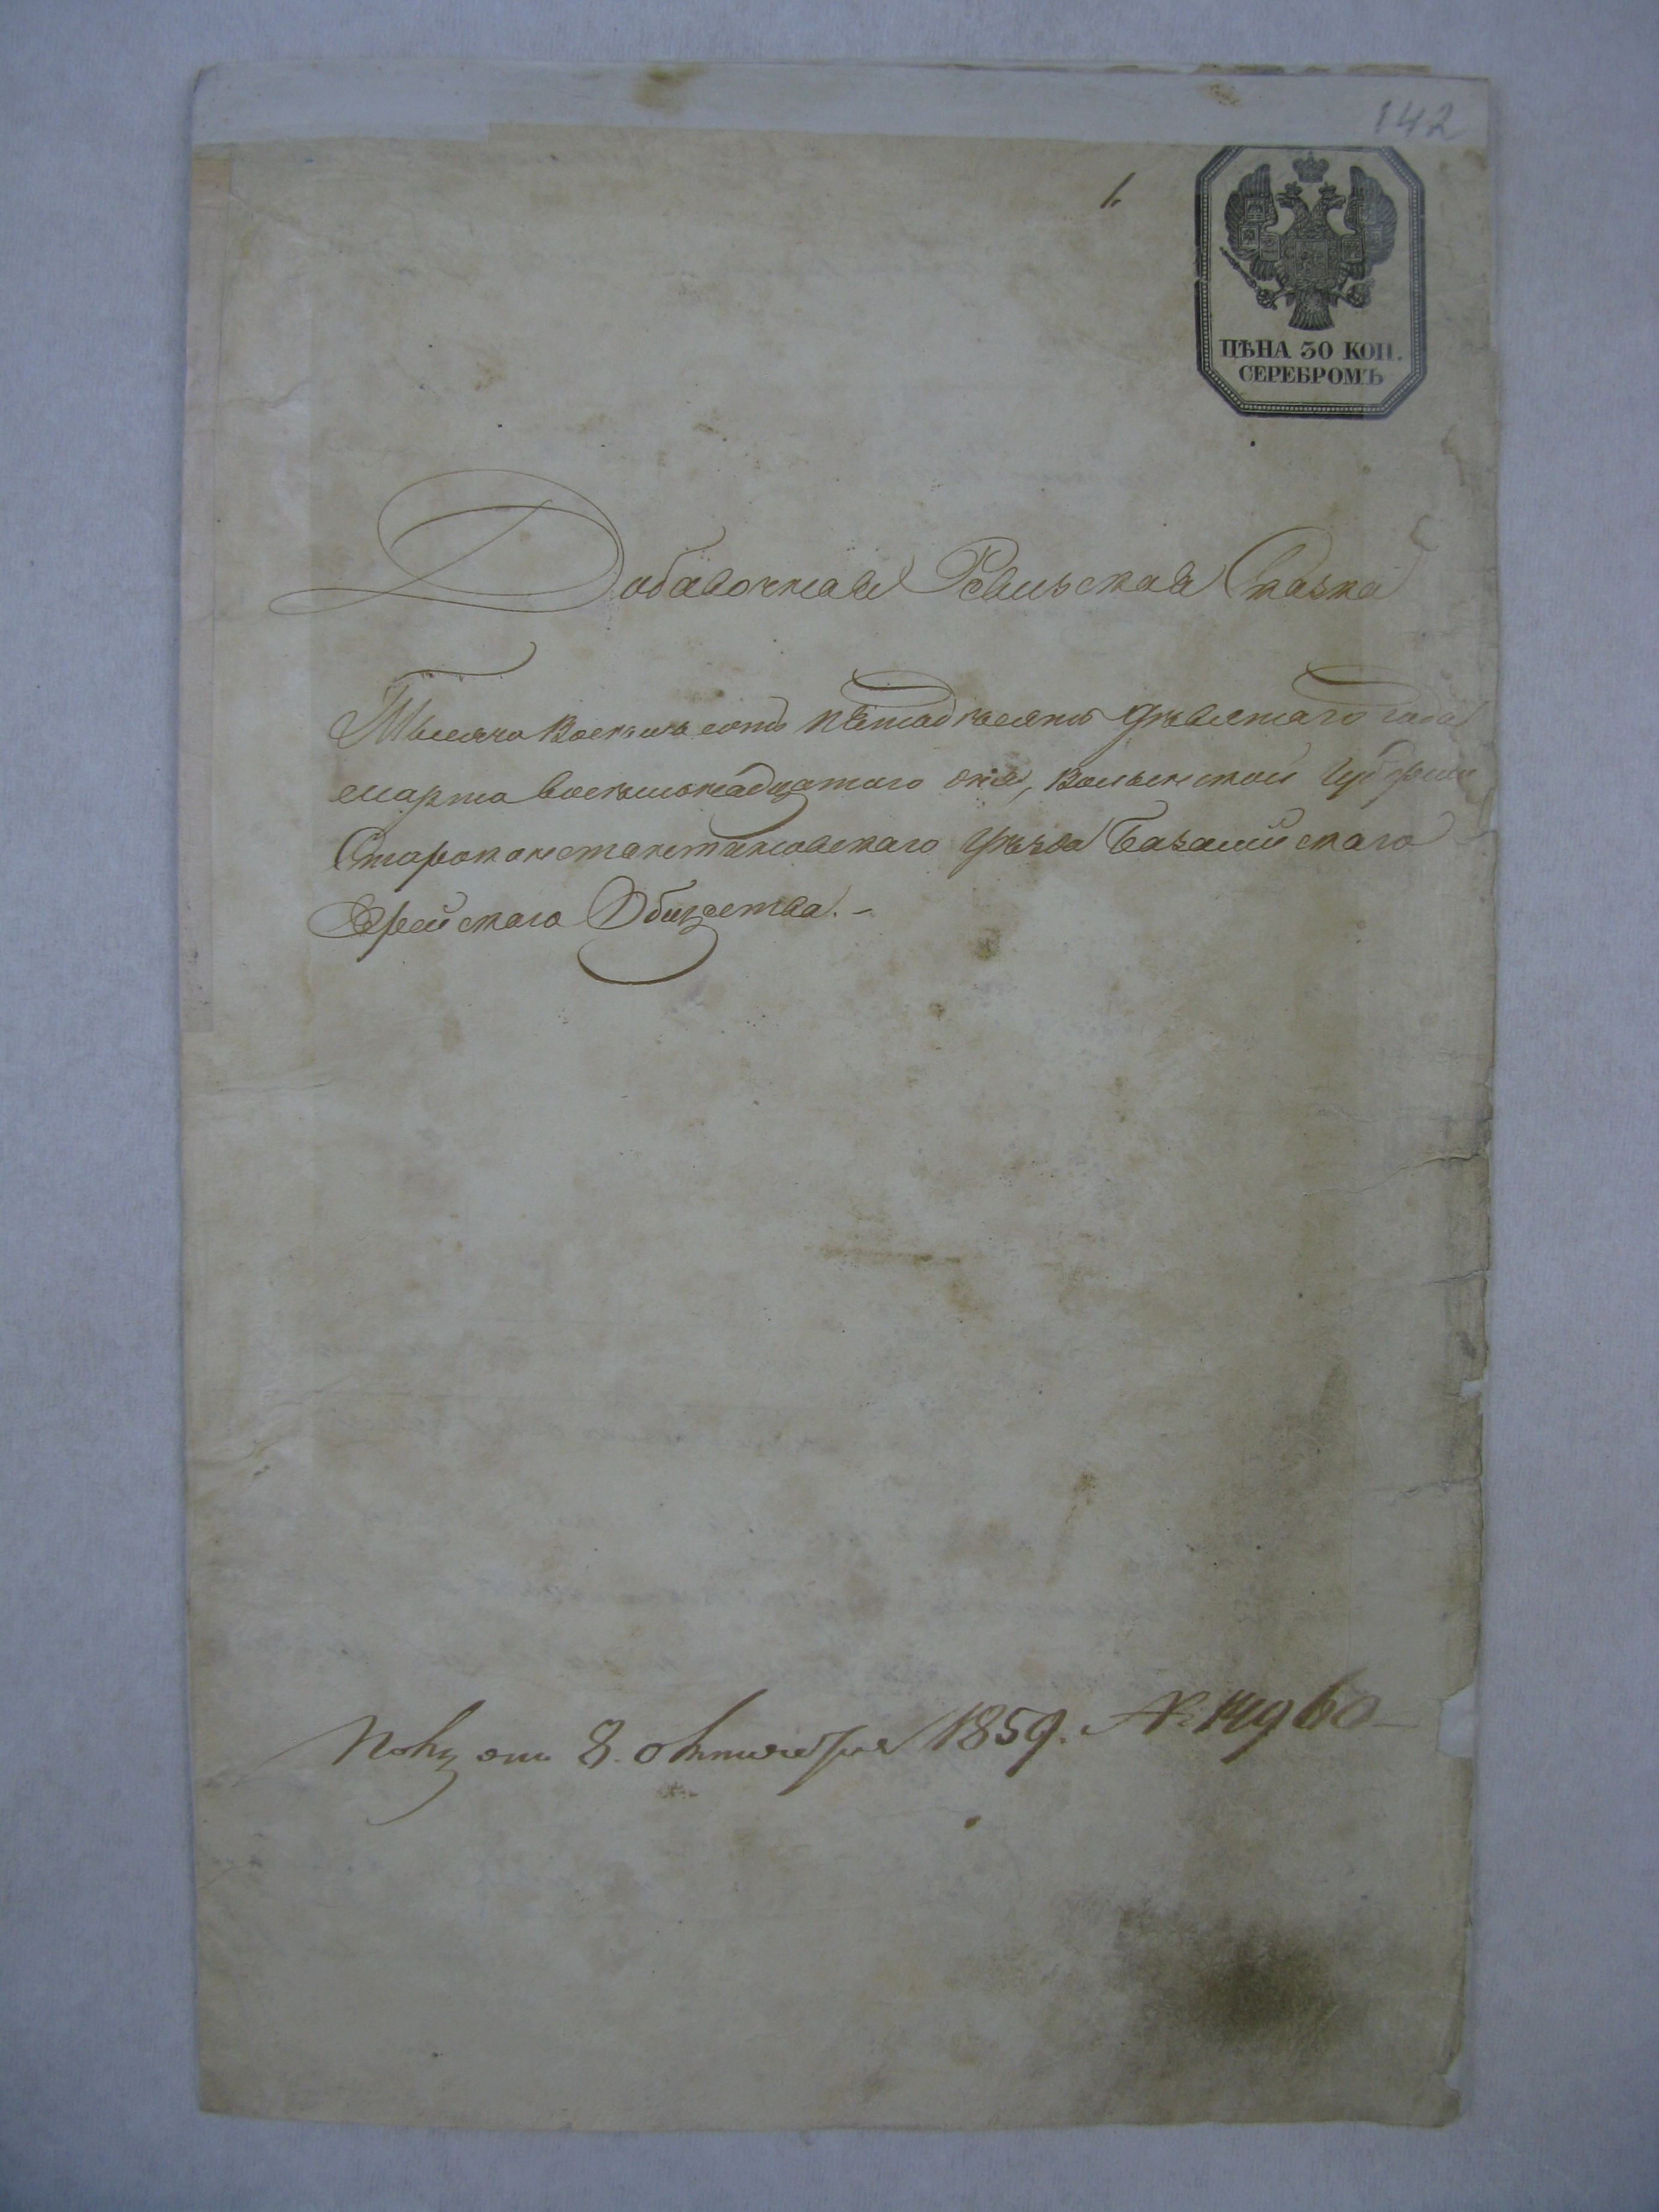 142
1.
ЦѢНА 30 КОП.
СЕРЕБРОМЪ
Добавочная Ревизская Сказка
Тысяча восемьсотъ пятьдесятъ девятаго года
марта восемьнадцатаго дня, Волынской Губерніи
Староконстантиновскаго уѣзда Базалійскаго
Еврейскаго Общества. -
отъ 8. октября 1859. №